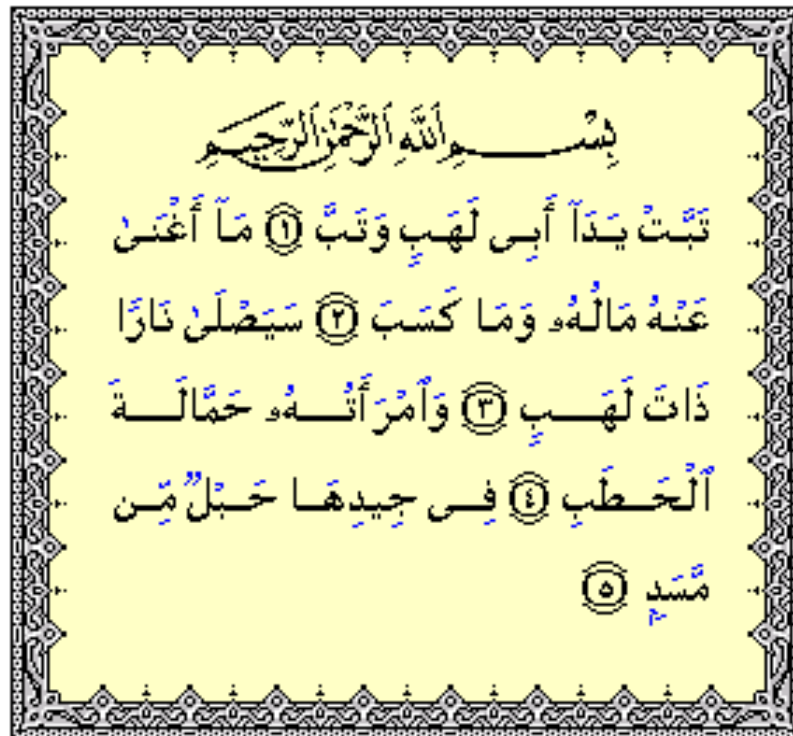 بِسْمِ اللَّهِ الرَّحْمَٰنِ الرَّحِيمِ
تَبَّتْ يَدَآ أَبِى لَهَبٍ وَتَبَّ ١ مَآ أَغْنَىٰ
عَنْهُ مَالُهُۥ وَمَا كَسَبَ ٢ سَيَصْلَىٰ نَارًا
ذَاتَ لَهَبٍ ٣ وَٱمْرَأَتُهُۥ حَمَّالَةَ
ٱلْحَطَبِ ٤ فِى جِيدِهَا حَبْلٌ مِّن
مَّسَدٍ ٥